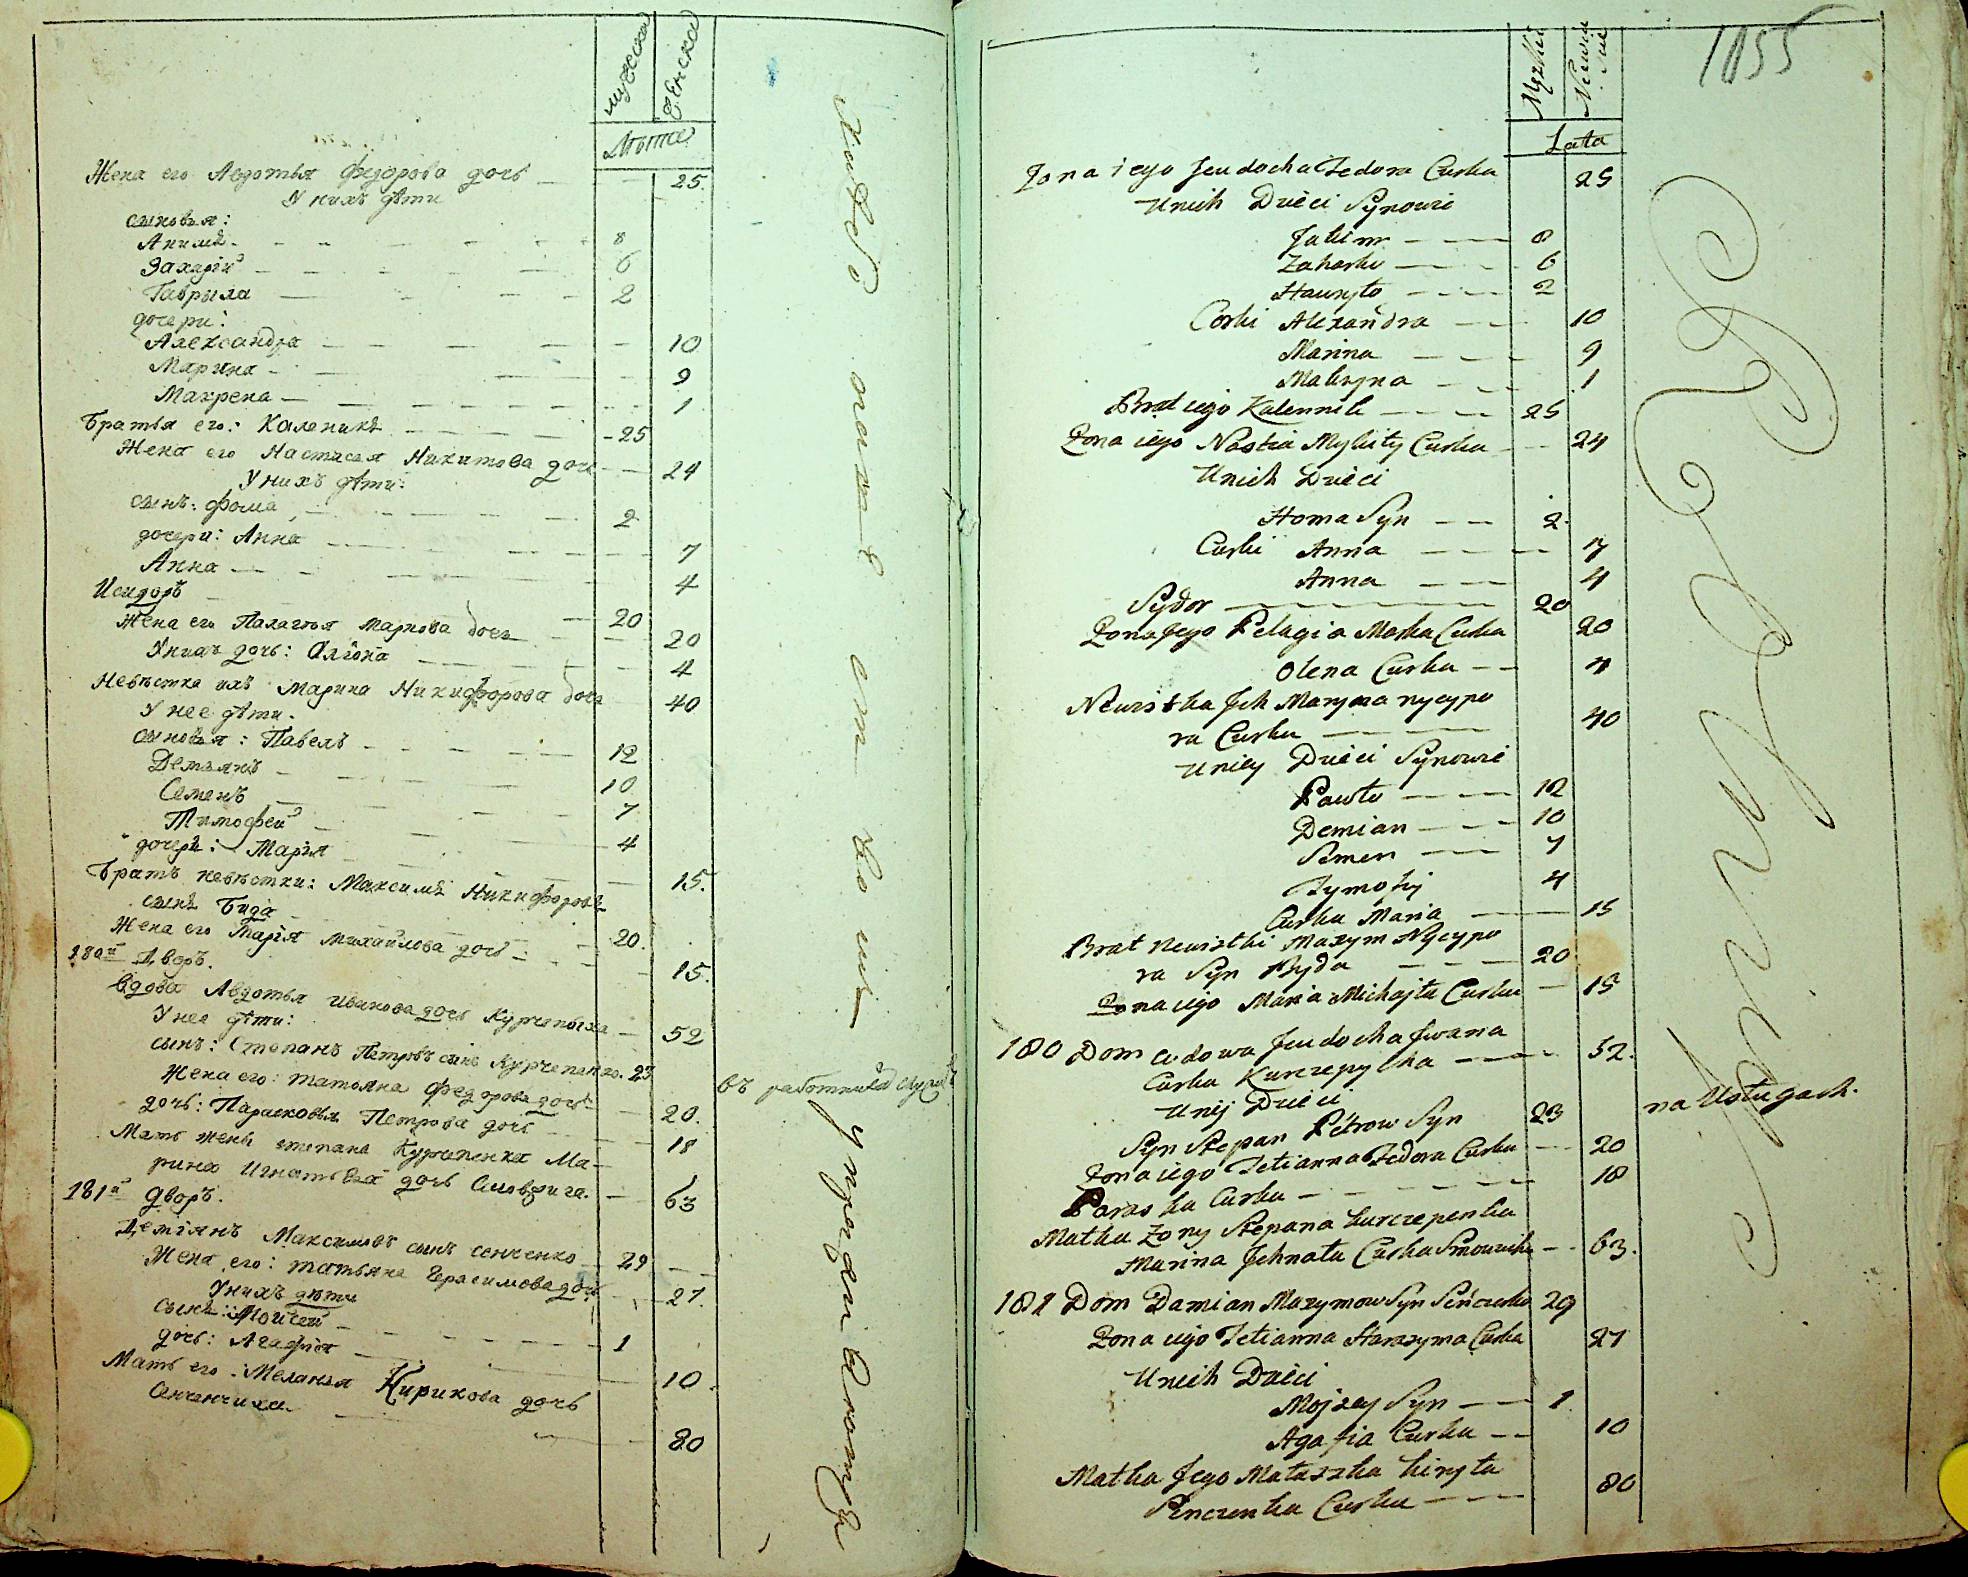 мужеска
женска
Лѣта
Жена его Авдотья Федорова дочь 25
У нихъ дѣти
сыновья:
Акимъ 8
Захарій 6
Гаврыла 2
дочери:
Александра 10
Марина 9
Макрена 1
Братья его: Каленикъ 25
Жена его Настасея Никитова дочь 24
У нихъ дѣти:
сынъ: Фома 2
дочери: Анна 7
Анна 4
Исидоръ 20
Жена его Палагея Маркова дочь 20
У нихъ дочь: Алiона 4
Невѣстка ихъ Марина Никифорова дочь 40
У нее дѣти.
сыновья: Павелъ 12
Демьянъ 10
Семенъ 7
Тимофей 4
дочери: Марія 15.
Братъ невѣстки: Максимъ Никифоровъ
сынъ Бида 20.
Жена его Марія Михайлова дочь 15.
180й дворъ.
Вдова Авдотья Иванова дочь Курчепыха 52
У нея дѣти:
сынъ: Степанъ Петровъ сынъ Курчепенко. 23
въ работникахъ
Жена его: Татьяна Федорова дочь 20.
дочь: Парасковья Петрова дочь 18
Мать жены Степана Курчепенка Ма-
рина Игнатьева дочь 63
181й дворъ.
Деміянъ Максимовъ сынъ Сенченко 29
Жена его: Татьяна Герасимова дочь 27.
У нихъ дѣти
сынъ: Мойсей 1
дочь: Агафія 10.
Мать его: Меланья Кирикова дочь
Сенченчиха. 80
1855
Męzkie
Lata
Zona iego Jeudocha Fedora Curka 25
Unich Dzieci Synowie
Jakim 8
Zaharko 6
Hauryło 2
Corki Alexandra 10
Marina 9
Makryna 1
Brat iego Kalennik 25
Zona iego Nastia Mykity Curka 24
Unich Dzieci
Homa Syn 2
Curki Anna 7
Anna 4
Sydor 20
Zona Jego Pelagia Marka Curka 20
Olena Curka 4
Newistka Jch Maryna nycypo
ra Curka 40
Uniey Dzieci Synowie
Pawło 12
Demian 10
Semen 7
Tymofij 4
Curka Maria 15
Brat newistki Maxym Nycypo
ra Syn Byda 20
Zona iego Maria Michajła Curka 15
180 Dom wdowa Jeudocha Jwana
Curka Kurczepycha 52.
Unij Dzieci
Syn Stepan Petrow Syn 23 na Usługach.
Zona iego Tetianna Fedora Curka 20
Paraska Curka 18
Matka Zony Stepana kurczepenka
Marina Jchnata Curka 63.
181 Dom Damian Maxymow Syn Seńczenko 29
Zona iego Tetianna Harasyma Curka 27
Unich Dzieci
Mojzey Syn 1
Agafia Curka 10
Matka Jego Małaszka kiryła
Senczenka Curka 80